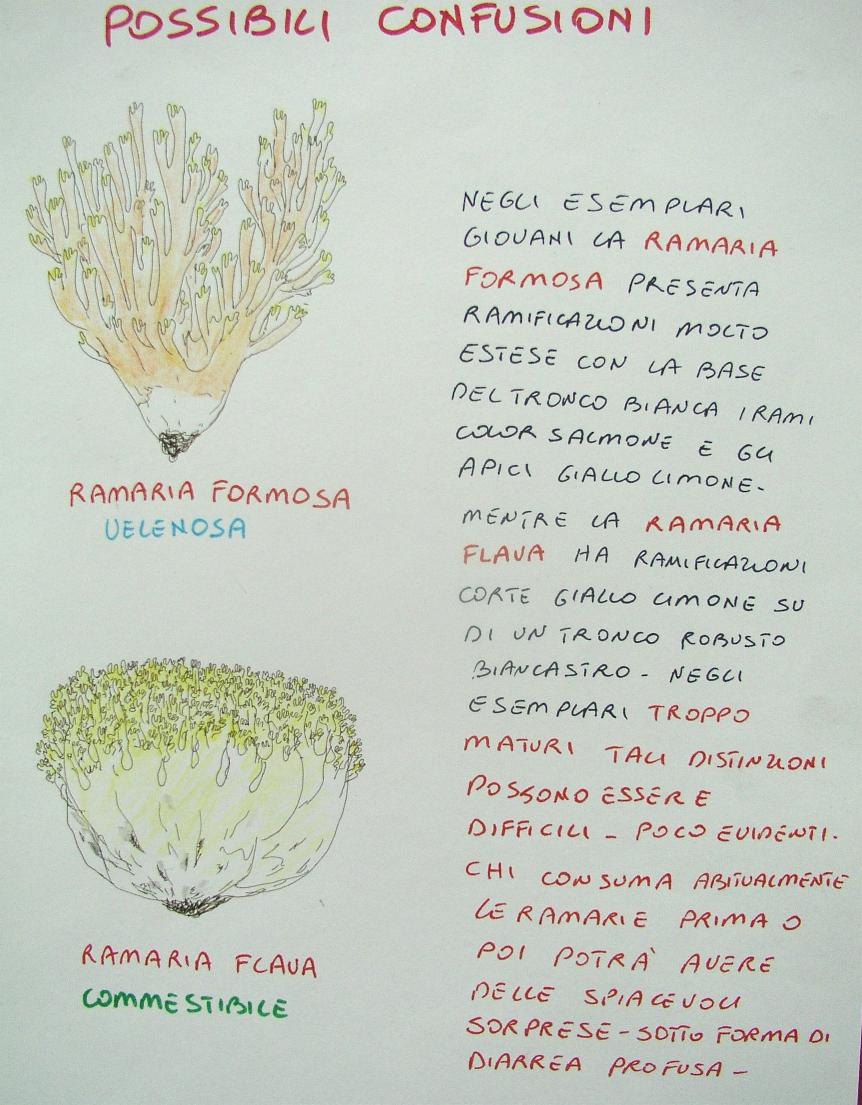 POSSIBILI CONFUSIONI
RAMARIA FORMOSA
VELENOSA
RAMARIA FLAVA
COMMESTIBILE
NEGLI ESEMPLARI
GIOVANI LA RAMARIA
FORMOSA PRESENTA
RAMIFICAZIONI MOLTO
ESTESE CON LA BASE
DEL TRONCO BIANCA I RAMI
COLOR SALMONE E GLI
APICI GIALLO LIMONE-
MENTRE LA RAMARIA
FLAVA HA RAMIFICAZIONI
CORTE GIALLO LIMONE SU
DI UN TRONCO ROBUSTO
BIANCASTRO - NEGLI
ESEMPLARI TROPPO
MATURI TALI DISTINZIONI
POSSONO ESSERE
DIFFICILI - POCO EVIDENTI.
CHI CONSUMA ABITUALMENTE
LE RAMARIE PRIMA O
POI POTRÀ AVERE
DELLE SPIACEVOLI
SORPRESE - SOTTO FORMA DI
DIARREA PROFUSA -